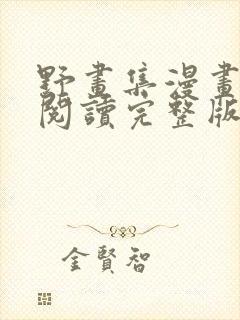 野畫集漫畫
閱讀完整版
金賢智